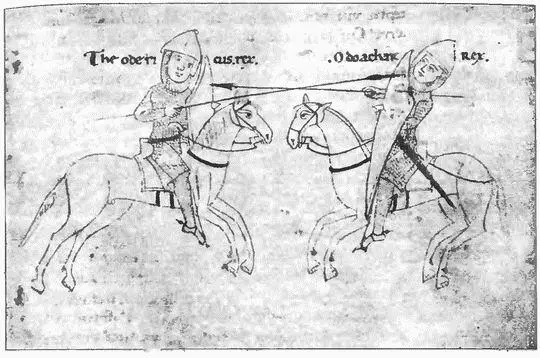 Theoderi cus.rex. .Odoachar Rex.